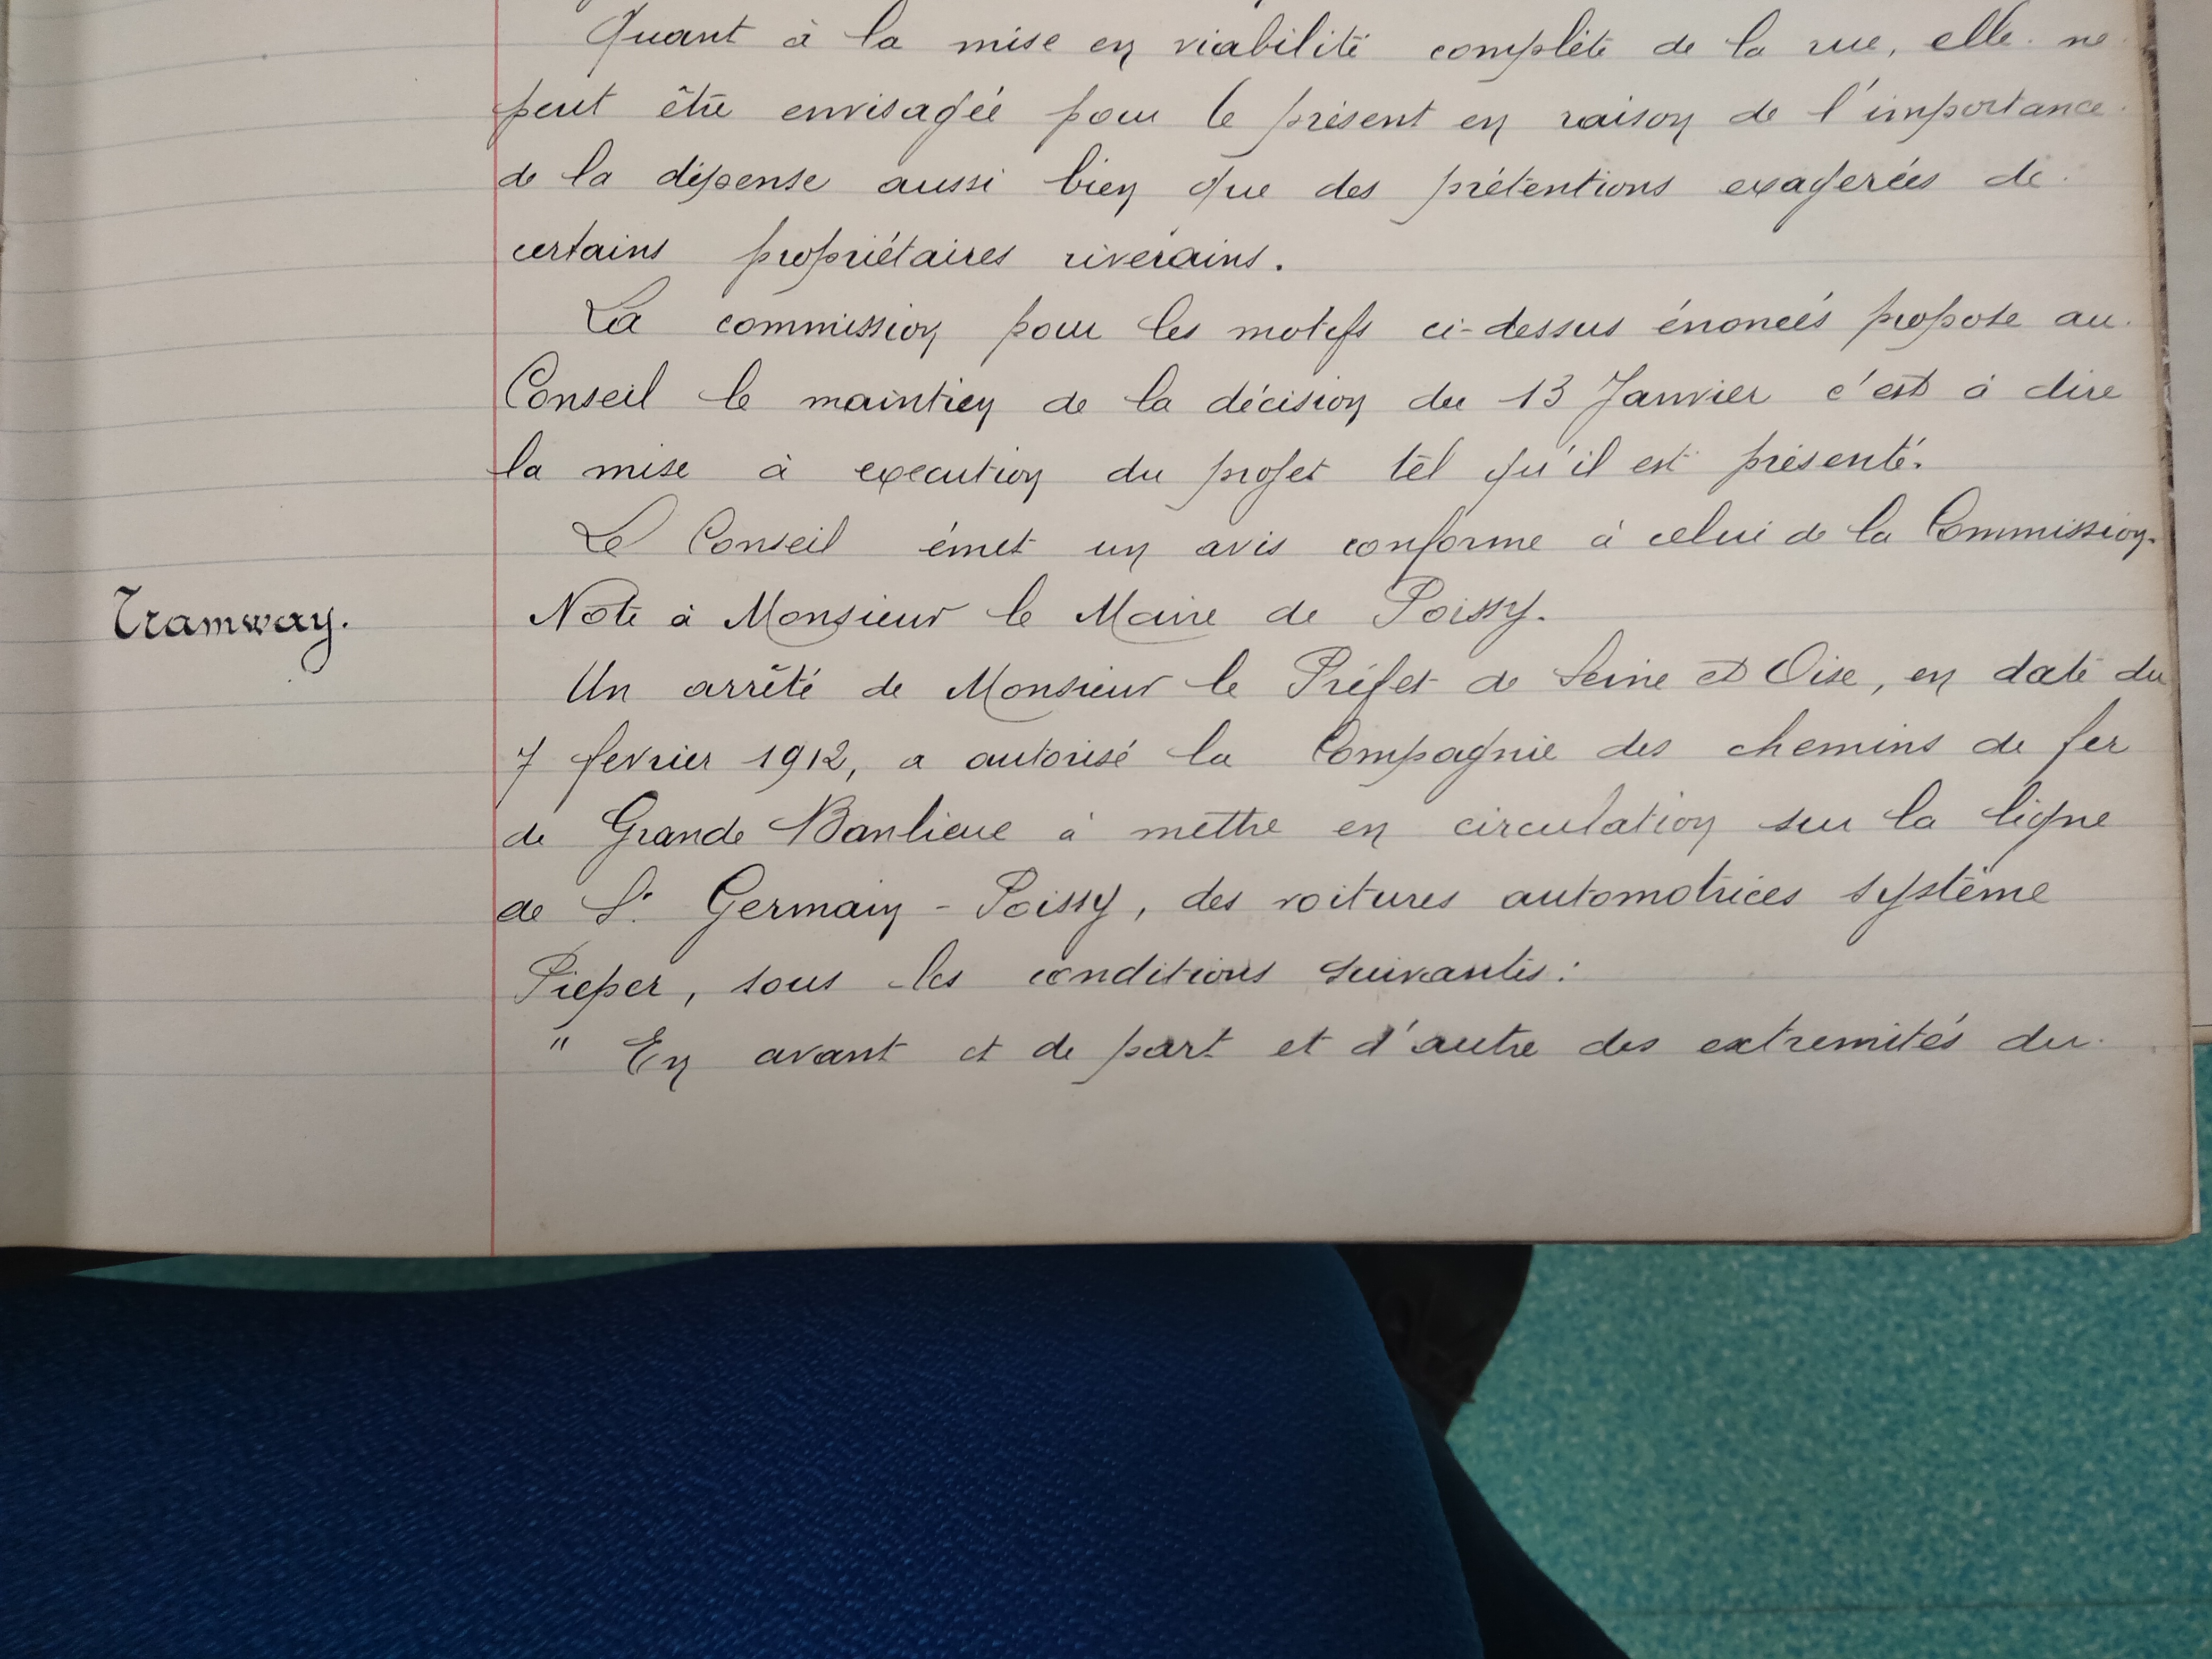 Quant à la mise en viabilité complète de la rue, elle ne
peut être envisagée pour le présent en raison de l'importance
de la dépense aussi bien que des prétentions exagerées de
certains propriétaires riverains.
La commission pour les motifs ci-dessus énoncés propose au
Conseil le maintien de la décision du 13 Janvier c'est à dire
la mise à execution du projet tel qu'il est présenté.
Le Conseil émet un avis conforme à celui de la Commission.
Tramway.
Note à Monsieur le Maire de Poissy.
Un arrêté de Monsieur le Préfet de Seine et Oise, en date du
7 fevrier 1912, a autorisé la Compagnie des chemins de fer
de Grande Banlieue à mettre en circulation sur la ligne
de St Germain - Poissy, des voitures automotrices système
Pieper, sous les conditions suivantes :
" En avant et de part et d'autre des extremités du